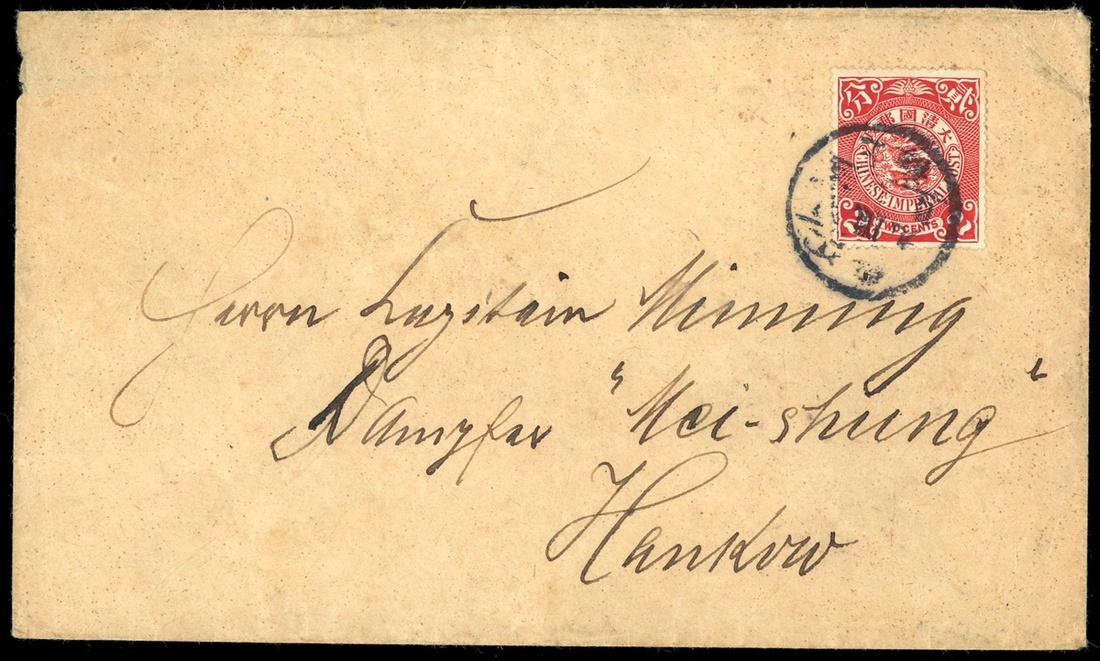 分 貳
郵國清大
CHINESE IMPERIAL POST
2 TWO CENTS 2
Herrn Kapitain Minnung
Dampfer "Mei-shung"
Hankow